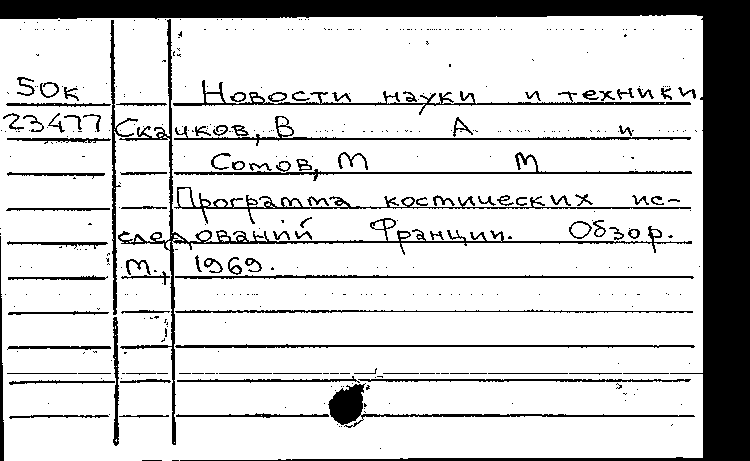 50к Новости науки и техники.
23477 Скачков, В А и
Сомов, М М
Программа костических ис-
следований Франции. Обзор.
М., 1969.